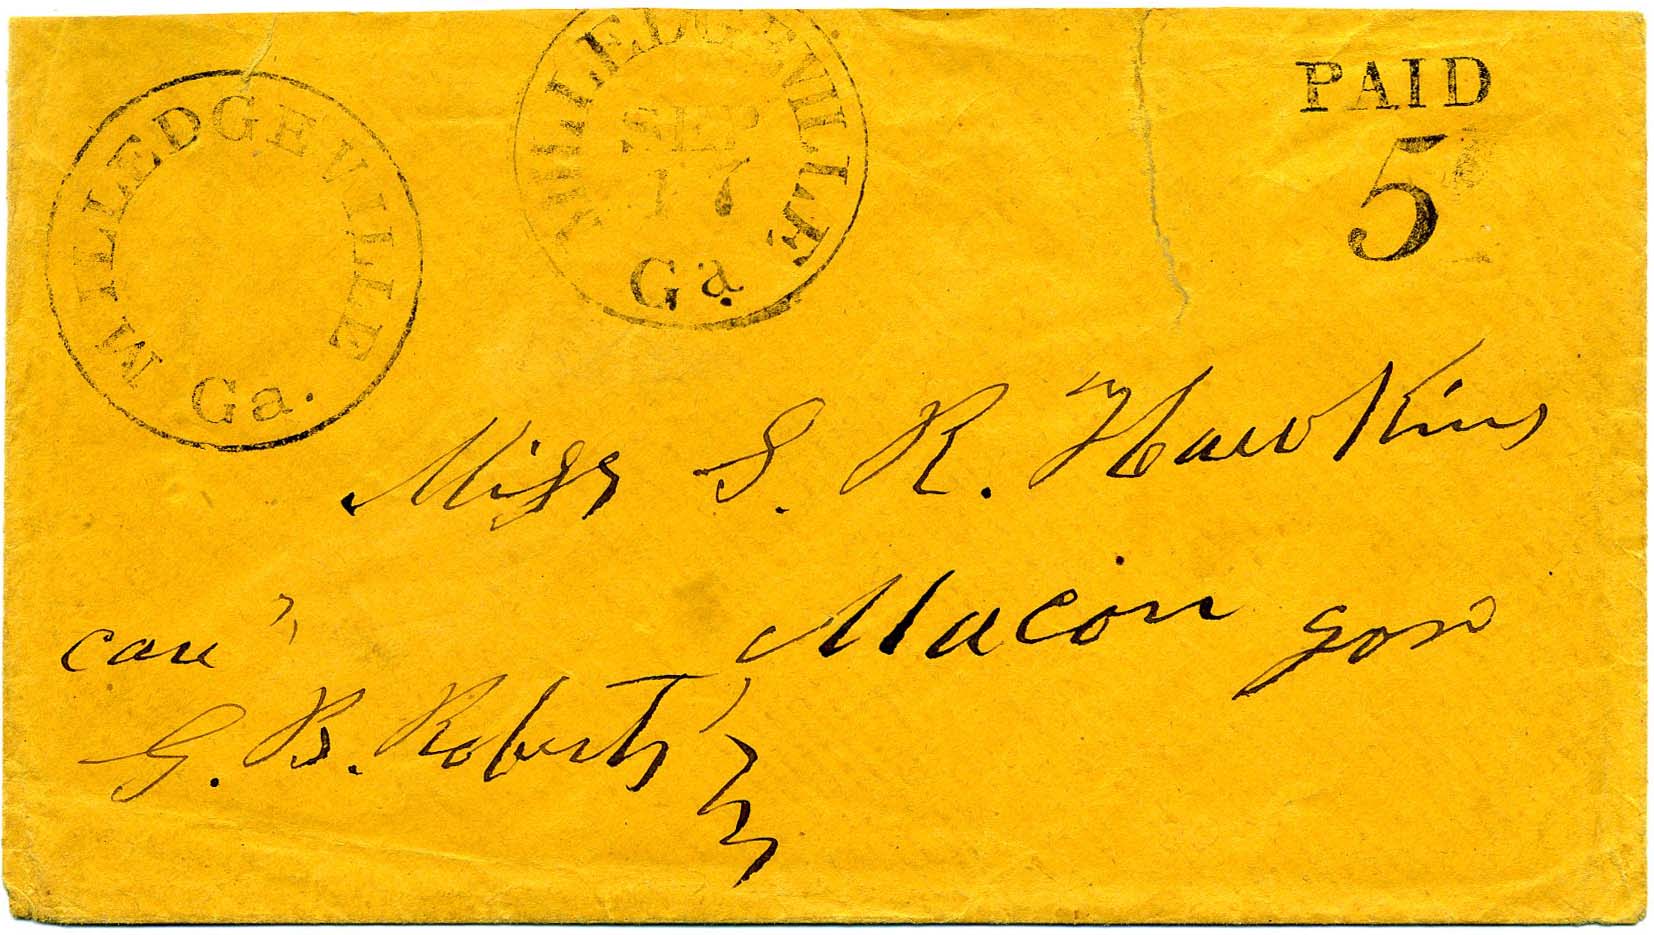 MILLEDGEVILLE
Ga.
MILLEDGEVILLE
SEP
17
Ga
PAID
5
Miss S. R. Hawkins
Macon
care
G. B. Roberts